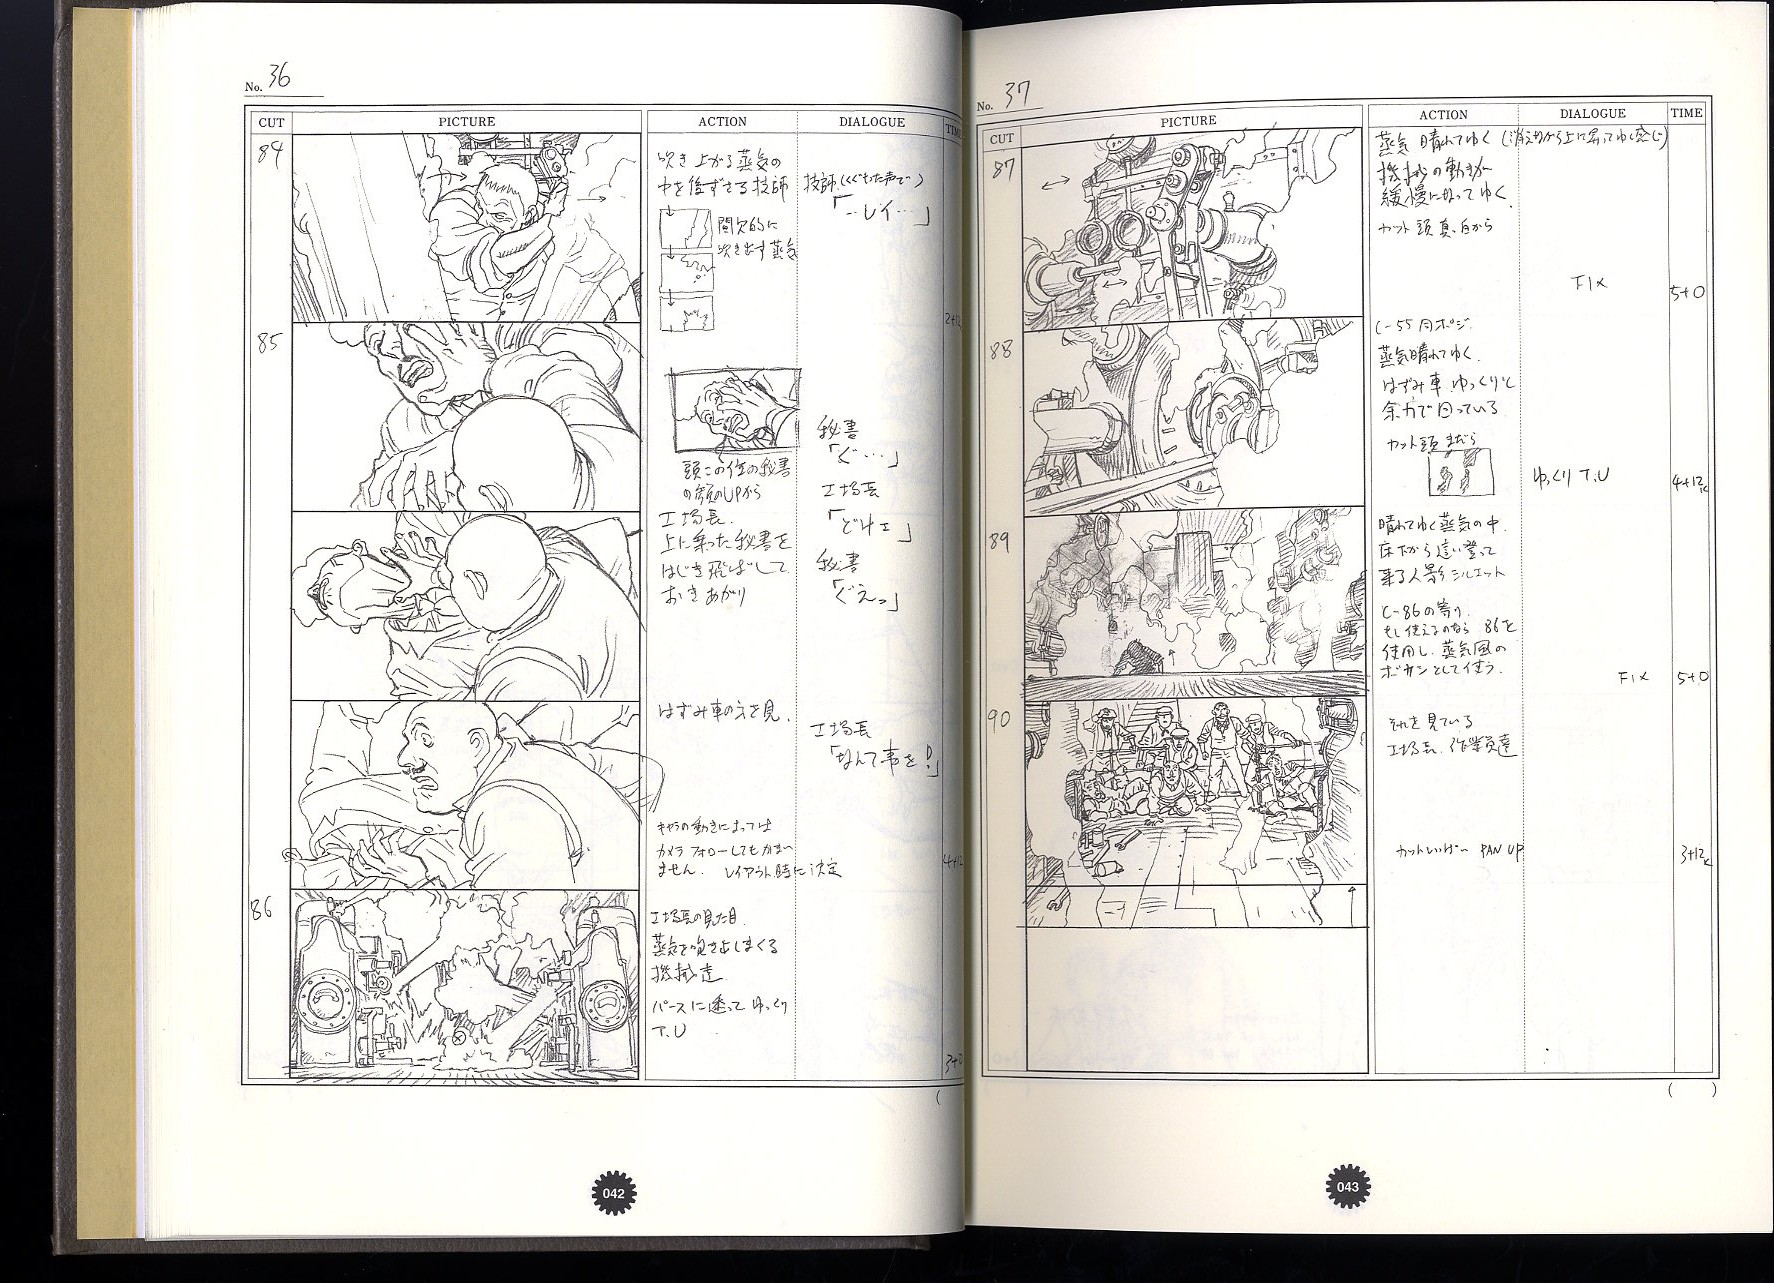 No. 36
CUT PICTURE ACTION DIALOGUE TIME
84
吹き上がる蒸気の
中を
技師
技師(くぐもった声で)
「‥レイ…」
間欠的に
吹き出す蒸気
2+12
85
秘書
「ぐ…」
頭この位の秘書
の顔のUPから
工場長
「どけェ」
工場長.
上に乗った秘書を
はじき飛ばして
おきあがり
秘書
「ぐえっ」
はずみ車の方を見、
工場長
「なんて事を!」
キャラの動きによっては
カメラフォローしてもかまい
ません. レイアウト時に決定
4+12
86
工場長の見た目.
蒸気を吹き出しまくる
機械達
パースに逆って ゆっくり
T.U
3+0
(
042
No. 37
CUT PICTURE ACTION DIALOGUE TIME
87
蒸気 晴れてゆく
機械の動きが
緩慢になってゆく
カット頭 真白から
FIX
5+0
88
C-55 同ポジ.
蒸気晴れてゆく.
はずみ車 ゆっくりと
余力で回っている
カット頭 まだら
ゆっくり T.U
4+12k
89
晴れてゆく蒸気の中.
床下から這い登って
来る人影 シルエット
C-86の寄り.
もし使えるのなら 86を
使用し、蒸気風の
FIX
5+0
90
それを見ている
工場長. 作業員達
PAN UP
3+12k
( )
043